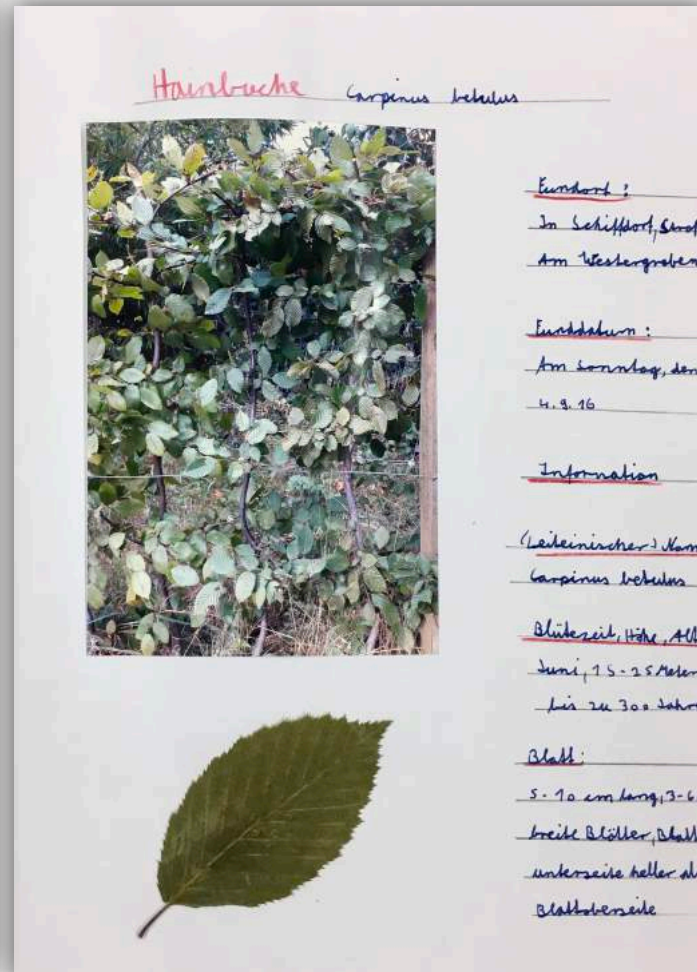 Hainbuche Carpinus betulus
Fundort:
In Schiffdorf,
Am Westergraben
Funddatum:
Am Sonntag, den
4.9.16
Information
(Leiteinischer) Nam
Carpinus betulus
Blütezeit, Höhe, Alt
Juni, 15-25 Meter
bis zu 300 Jahre
Blatt:
5-10 cm lang, 3-6
breite Blätter, Blatt
unterseite heller al
Blattoberseite